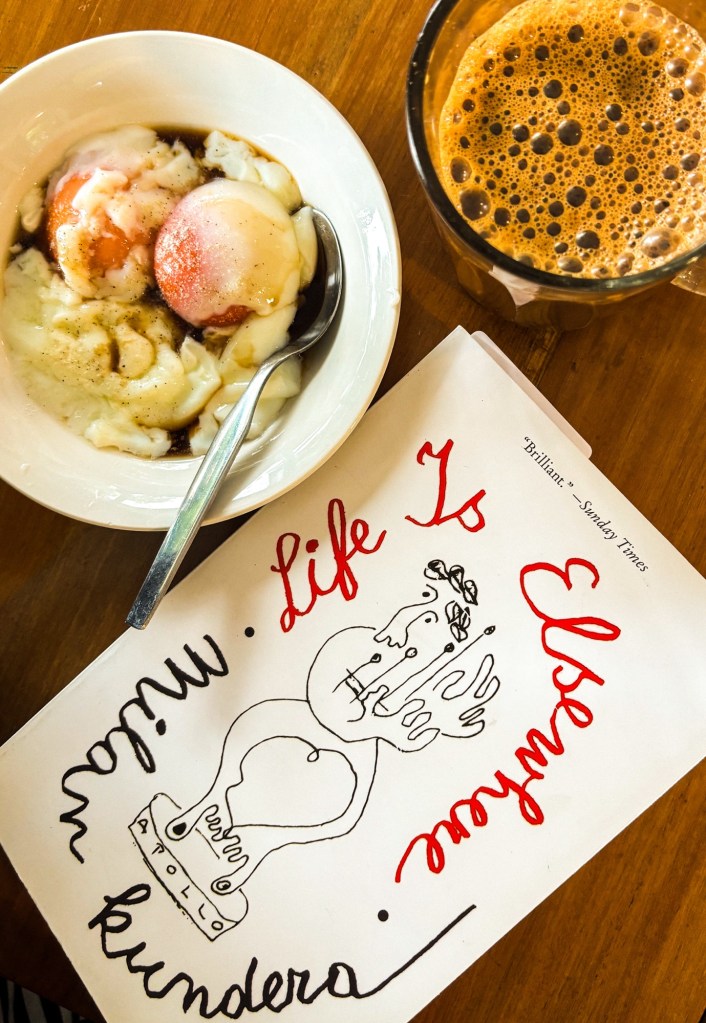 "Brilliant." —Sunday Times
Life Is Elsewhere
milan kundera
APOLLO